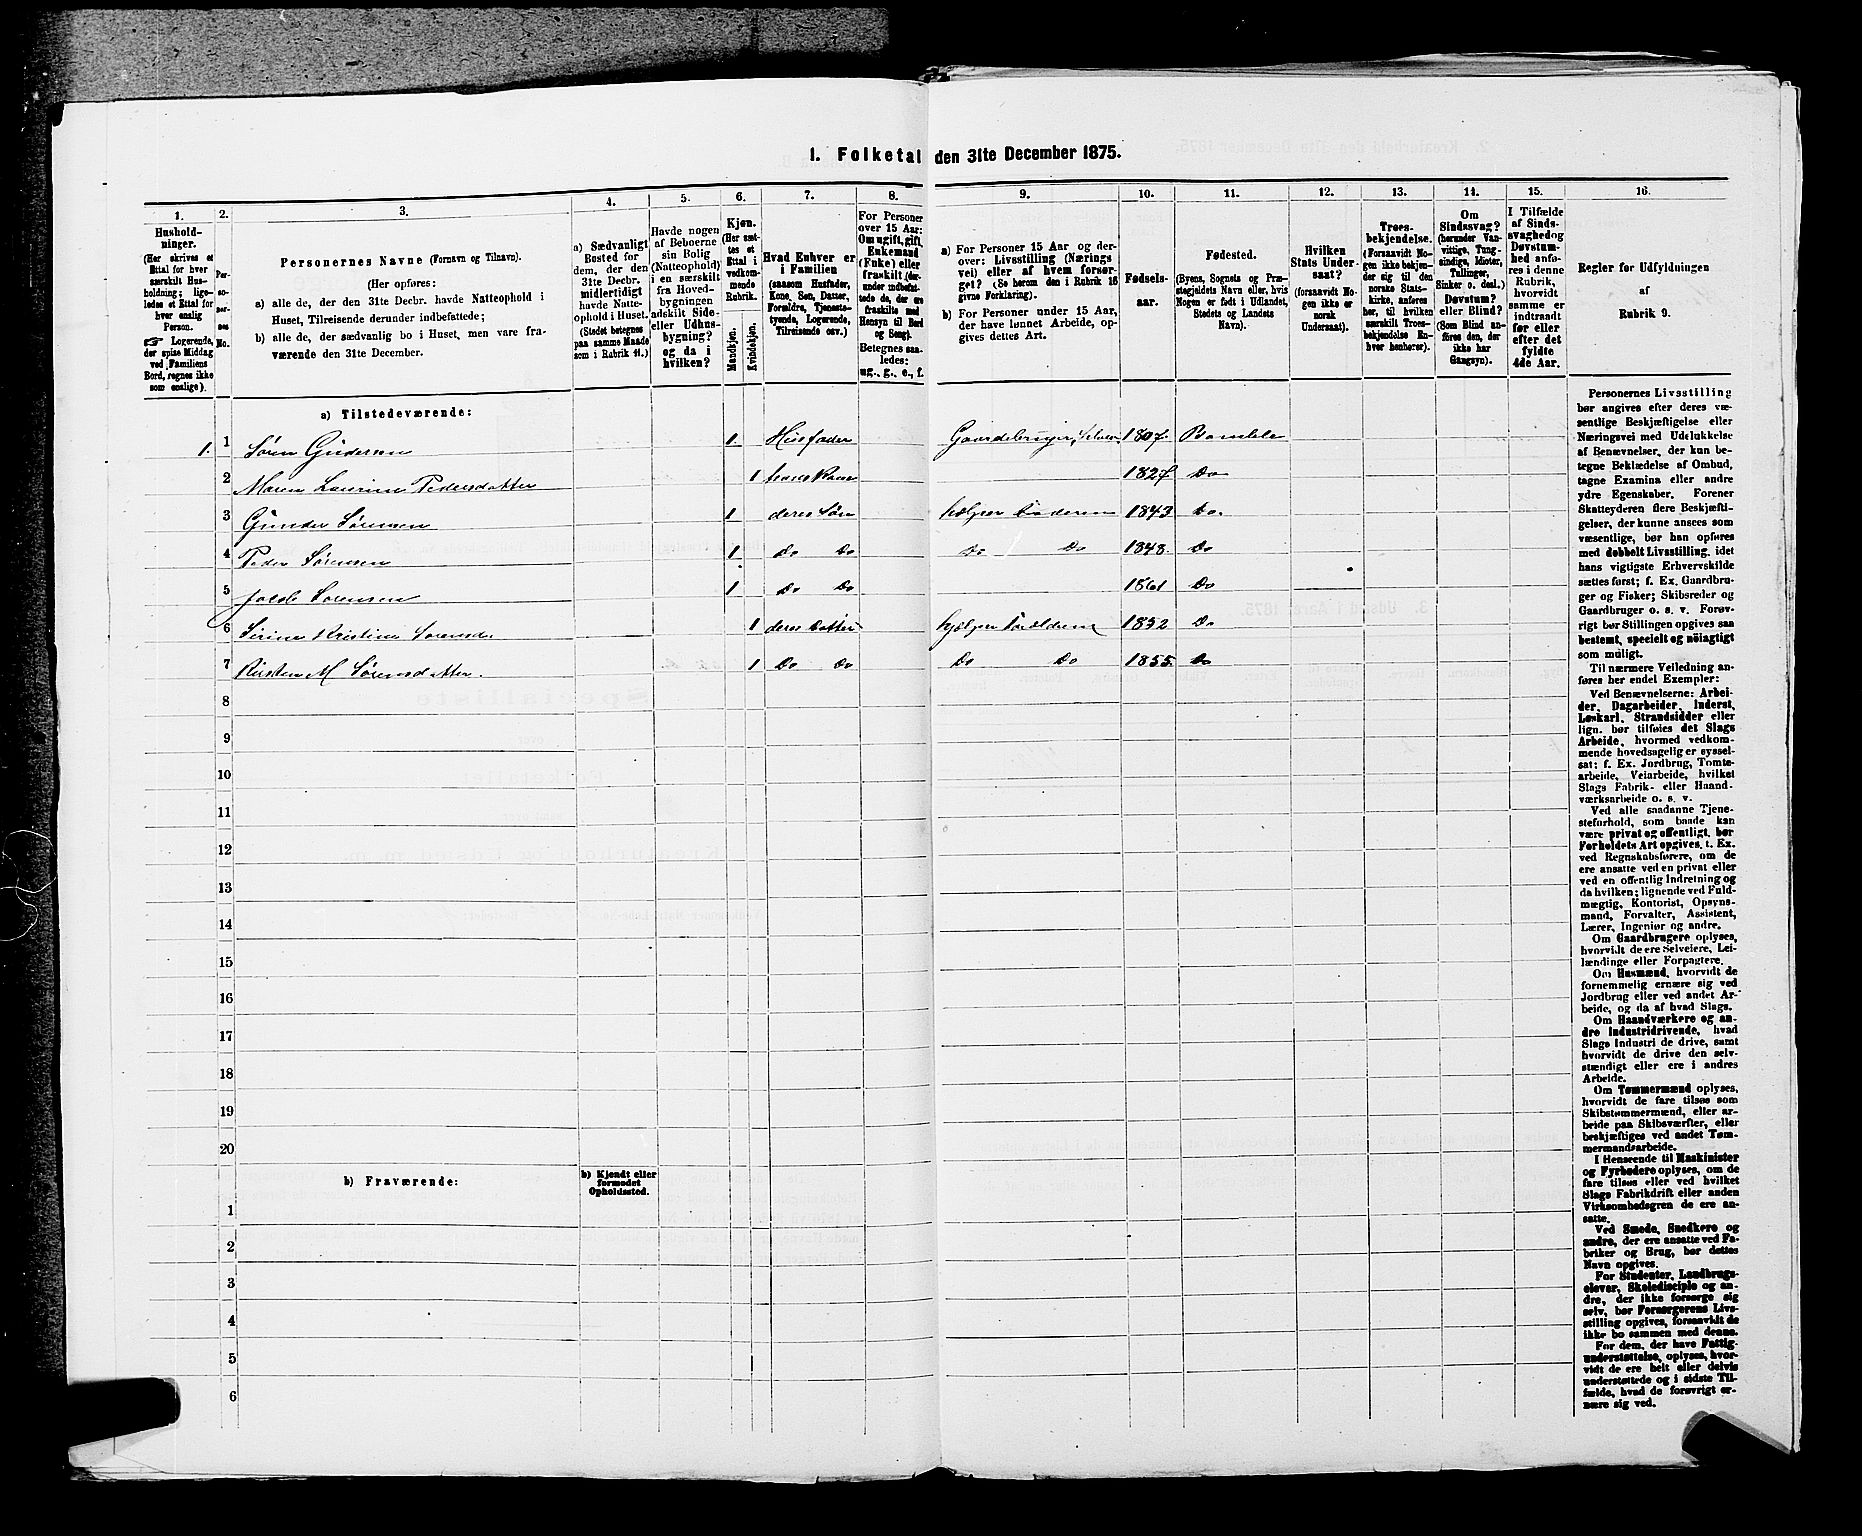 1. Folketal den 31te December 1875.
1. 2. 3. 4. 5. 6. 7. 8. 9. 10. 11. 12. 13. 14. 15. 16.
Hushold-
ninger.
(Her skrives et
Ettal for hver
særskilt Hus-
holdning; lige-
ledes et Ettal for
hver enslig
Person.
☞ Logerende,
der spise Middag
ved Familiens
Bord, regnes ikke
som enslige).
Per-
so-
ner-
nes
No.
Personernes Navne (Fornavn og Tilnavn).
(Her opføres:
a) alle de, der den 31te Decbr. havde Natteophold i
Huset, Tilreisende derunder indbefattede;
b) alle de, der sædvanlig bo i Huset, men vare fra-
værende den 31te December.
a) Sædvanligt
Bosted for
dem, der den
31te Decbr.
midlertidigt
havde Natte-
ophold i Huset.
(Stedet betegnes
paa samme Maade
som i Rubrik 11.)
Havde nogen
af Beboerne
sin Bolig
(Natteophold)
i en særskilt
fra Hoved-
bygningen
adskilt Side-
eller Udhus-
bygning?
og da i
hvilken?
Kjøn.
(Her sæt-
tes et
Ettal i
vedkom-
mende
Rubrik.
Mandkjøn.
Kvindekjøn.
Hvad Enhver er
i Familien
(saasom Husfader,
Kone, Søn, Datter,
Forældre, Tjeneste-
tyende, Logerende,
Tilreisende osv.)
For Personer
over 15 Aar:
Om ugift, gift,
Enkemand
(Enke) eller
fraskilt (der-
under indbefat-
tede de, der ere
fraskilte med
Hensyn til Bord
og Seng).
Betegnes saa-
ledes:
ug., g., e., f.
a) For Personer 15 Aar og der-
over: Livsstilling (Nærings
vei) eller af hvem forsør-
get? (Se herom den i Rubrik 16
givne Forklaring).
b) For Personer under 15 Aar,
der have lønnet Arbeide, op-
gives dettes Art.
Fødsels-
aar.
Fødested.
(Byens, Sognets og Præ-
stegjeldets Navn eller, hvis
Nogen er født i Udlandet,
Stedets og Landets
Navn).
Hvilken
Stats Under-
saat?
(forsaavidt No-
gen ikke er
norsk
Undersaat).
Troes-
bekjendelse.
(Forsaavidt No-
gen ikke bekjen-
der sig til den
norske Stats-
kirke, anføres
her, til hvilken
særskilt Troes-
bekjendelse En-
hver henhører).
Om
Sindssvag?
(herunder Van-
vittige, Tung-
sindige, Idioter,
Tullinger,
Sinker o. desl.)
Døvstum?
eller Blind?
(Som Blind an-
føres den, der
ikke har
Gangsyn).
I Tilfælde
af Sinds-
svaghed og
Døvstum-
hed anfø-
res i denne
Rubrik,
hvorvidt
samme er
indtraadt
før eller
efter det
fyldte
4de Aar.
Regler for Udfyldningen
af
Rubrik 9.
a) Tilstedeværende:
1. 1 Søren Gundersen 1. Husfader Gaardbruger, Selveier 1807. Bamble
2 Maren Laurine Pedersdatter 1 hans Kone 1827 Do
3 Gunder Sørensen 1 deres Søn hjelper Faderen 1843 Do.
4 Peder Sørensen 1 Do Do Do Do 1848. Do
5 Jakob Sørensen 1 Do Do 1861 Do
6 Serine Kristine Sørensd. 1 deres Datter hjelper Forældrene 1852 Do
7 Kirsten M Sørensdatter. 1 Do Do Do Do 1855. Do
8
9
10
11
12
13
14
15
16
17
18
19
20
b) Fraværende:
b) Kjendt eller
formodet
Opholdssted.
1
2
3
4
5
6
Personernes Livsstilling
bør angives efter deres væ-
sentlige Beskjæftigelse eller
Næringsvei med Udelukkelse
af Benævnelser, der kun be-
tegne Beklædelse af Ombud,
tagne Examina eller andre
ydre Egenskaber. Forener
Skatteyderen flere Beskjæfti-
gelser, der kunne ansees som
væsentlige, bør han opføres
med dobbelt Livsstilling, idet
hans vigtigste Erhvervskilde
sættes først; f. Ex. Gaardbru-
ger og Fisker; Skibsreder og
Gaardbruger o. s. v. Forøv-
rigt bør Stillingen opgives saa
bestemt, specielt og nöiagtigt
som muligt.
Til nærmere Veiledning an-
føres her endel Exempler:
Ved Benævnelserne: Arbei-
der, Dagarbeider, Inderst,
Løskarl, Strandsidder eller
lign. bør tilføies det Slags
Arbeide, hvormed vedkom-
mende hovedsagelig er syssel-
sat; f. Ex. Jordbrug, Tomte-
arbeide, Veiarbeide, hvilket
Slags Fabrik- eller Haand-
værksarbeide o. s. v.
Ved alle saadanne Tjene-
steforhold, som baade kan
være privat og offentligt, bør
Forholdets Art opgives, t. Ex.
ved Regnskabsførere, om de
ere ansatte ved en privat eller
ved en offentlig Indretning og
da hvilken; lignende ved Fuld-
mægtig, Kontorist, Opsyns-
mand, Forvalter, Assistent,
Lærer, Ingeniør og andre.
Om Gaardbrugere oplyses,
hvorvidt de ere Selveiere, Lei-
lændinge eller Forpagtere.
Om Husmænd, hvorvidt de
fornemmelig ernære sig ved
Jordbrug eller ved andet Ar-
beide, og da af hvad Slags.
Om Haandværkere og an-
dre Industridrivende, hvad
Slags Industri de drive, samt
hvorvidt de drive den selv-
stændigt eller ere i andres
Arbeide.
Om Tømmermænd oplyses,
hvorvidt de fare tilsøs som
Skibstømmermænd, eller ar-
beide paa Skibsværfter, eller
beskjæftiges ved andet Tøm-
mermandsarbeide.
I Henseende til Maskinister
og Fyrbødere oplyses, om de
fare tilsøs eller ved hvilket
Slags Fabrikdrift eller anden
Virksomhedsgren de ere an-
satte.
Ved Smede, Snedkere og
andre, der ere ansatte ved Fa-
briker og Brug, bør dettes
Navn opgives.
For Studenter, Landbrugs-
elever, Skoledisciple og an-
dre, der ikke forsørge sig
selv, bør Forsørgerens Livs-
stilling opgives, forsaavidt de
ikke bo sammen med denne.
For dem, der have Fattig-
understøttelse, oplyses, hvor-
vidt de ere helt eller delvis
understøttede og i sidste Til-
fælde, hvad de forøvrigt er-
nære sig ved.